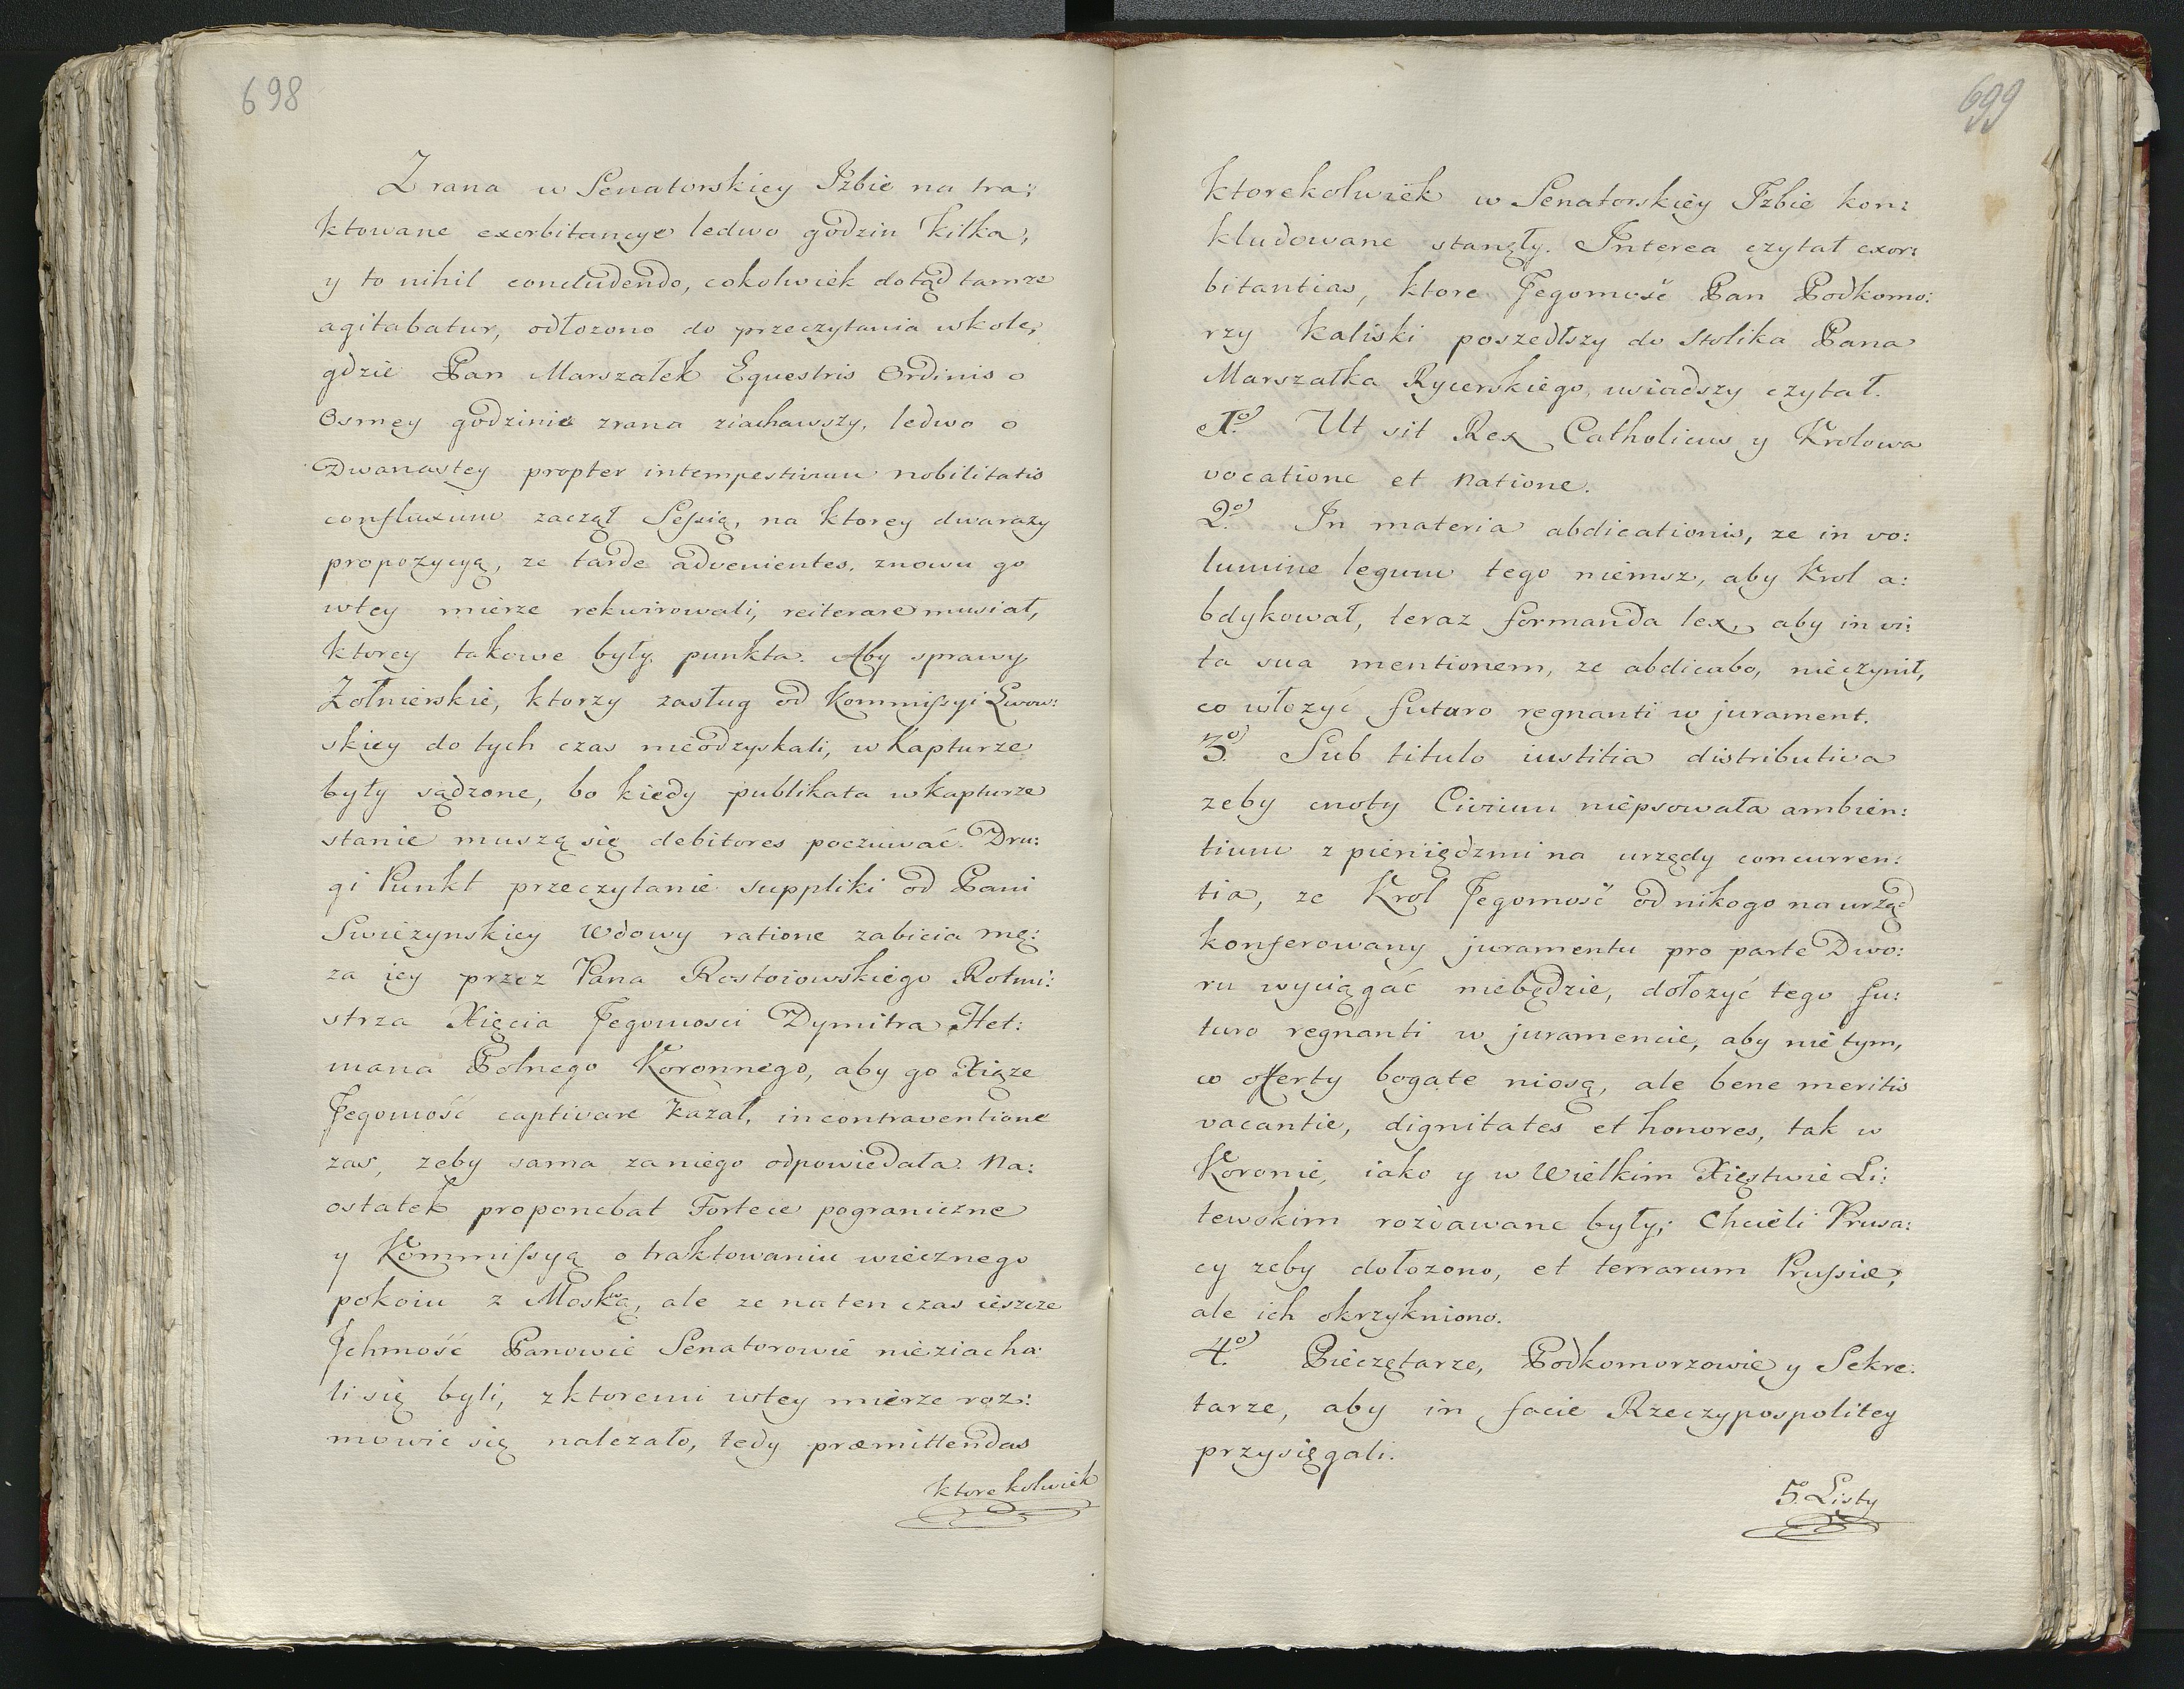 698
Z rana w Senatorskiey Jzbie na tra:
ktowane exorbitancye ledwo godzin kilka,
y to nihil concludendo, cokolwiek dotąd tamze
agitabatur, odłozono do przeczytania wkole,
gdzie Pan Marszałek Equestris Ordinis o
Osmey godzinie zrana ziachawszy, ledwo o
Dwanastey propter intempestivum nobilitatis
confluxum zaczął Sessią, na ktorey dwarazy
propozycyą, ze tarde advenientes, znowu go
wtey mierze rekwirowali, reiterare musiał,
ktorey takowe były punkta. Aby sprawy
Zołnierskie, ktorzy zasług od Kommissyi Lwow:
skiey do tych czas nieodzyskali, w Kapturze
były sądzone, bo kiedy publikata w Kapturze
stanie muszą się debitores poczuwać. Dru:
gi Punkt przeczytanie suppliki od Pani
Swiezynskiey Wdowy ratione zabicia mę:
za iey przez Pana Rostoiowskiego Rotmi:
strza Xięcia Jegomosci Dymitra Het:
mana Polnego Koronnego, aby go Xiąze
Jegomość captivare kazał, in contraventione
zas, zeby sama zaniego odpowiedała. Na:
ostatek proponebat Fortece pograniczne
y Kommissyą o traktowaniu wiecznego
pokoiu z Moskwą, ale ze na ten czas ieszcze
Jchmość Panowie Senatorowie nieziacha:
li się byli, z ktoremi wtey mierze roz:
mowic się nalezało, tedy præmittendas
ktorekolwiek
699
ktorekolwiek w Senatorskiey Jzbie kon:
kludowane stanęły. Interea czytał exor:
bitantias, ktore Jegomość Pan Podkomo:
rzy Kaliski poszedłszy do Stolika Pana
Marszałka Rycerskiego, usiadszy czytał.
1º. Ut sit Rex Catholicus y Krolowa
vocatione et natione.
2º. In materia abdicationis, ze in vo:
lumine legum tego niemsz, aby Krol a:
bdykował, teraz formanda lex, aby in vi:
ta sua mentionem, ze abdicabo, nieczynił,
co włozyć futuro regnanti w jurament.
3º. Sub titulo iustitia distributiva
zeby cnoty Civium niepsowała ambien:
tium z pieniędzmi na urzędy concurren:
tia, ze Krol Jegomość od nikogo na urząd
konferowany juramentu pro parte Dwo:
ru wyciągać niebędzie, dołozyć tego fu:
turo regnanti w juramencie, aby nie tym,
co offerty bogate niosą, ale bene meritis
vacantie, dignitates et honores, tak w
Koronie, iako y w Wielkim Xięstwie Li:
tewskim rozdawane były; Chcieli Prusa:
cy zeby dołozono, et terrarum Prussiæ,
ale ich okrzykniono.
4º. Pieczętarze, Podkomorzowie y Sekre:
tarze, aby in facie Rzeczypospolitey
przysięgali.
5º. Listy